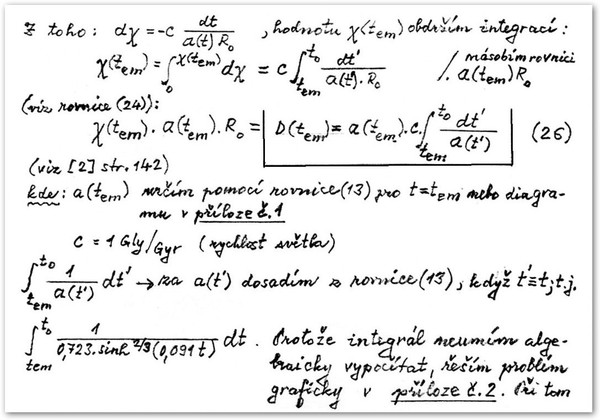 Z toho: dχ = -c dt / a(t) R₀ , hodnotu χ(t_em) obdržím integrací:
χ(t_em) = ∫₀^χ(t_em) dχ = c ∫_{t_em}^{t₀} dt' / a(t').R₀ /. násobím rovnici a(t_em)R₀
(viz rovnice (24)):
χ(t_em). a(t_em). R₀ = D(t_em) = a(t_em).c. ∫_{t_em}^{t₀} dt' / a(t') (26)
(viz [2] str. 142)
kde: a(t_em) určím pomocí rovnice (13) pro t=t_em nebo diagra-
mu v příloze č.1
c = 1 Gly/Gyr (rychlost světla)
∫_{t_em}^{t₀} 1/a(t') dt' → za a(t') dosadím z rovnice (13), když t'≡t, t.j.
∫_{tem}^{t₀} 1 / 0,723.sinh^{2/3}(0,091t) dt . Protože integrál neumím alge-
braicky vypočítat, řeším problém
graficky v příloze č.2. Při tom